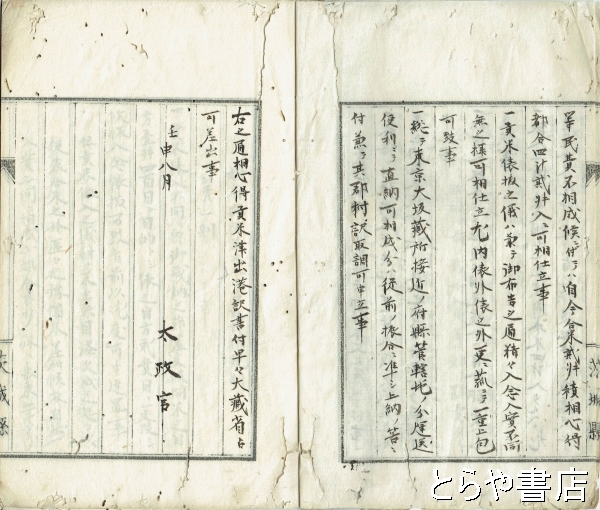 等民費不相成候ニ付テハ自今合米貳升積相心得
都合四斗貳升入ニ可相仕立事
一貢米俵拵之儀ハ兼テ御布告之通精々入念入實不同
無之様可相仕立尤内俵外俵之外更ニ菰ニテ一重上包
可致事
一総テ東京大坂藏所接近ノ府縣管轄地ノ分運送
便利ニテ直納可相成分ハ従前ノ振合ニ準シ上納ノ筈ニ
付兼テ其郡村訳取調可申立事
右之通相心得貢米津出港訳書付早々大藏省ヘ
可差出事
壬申八月
太政官
茨城縣
茨城縣
とらや書店